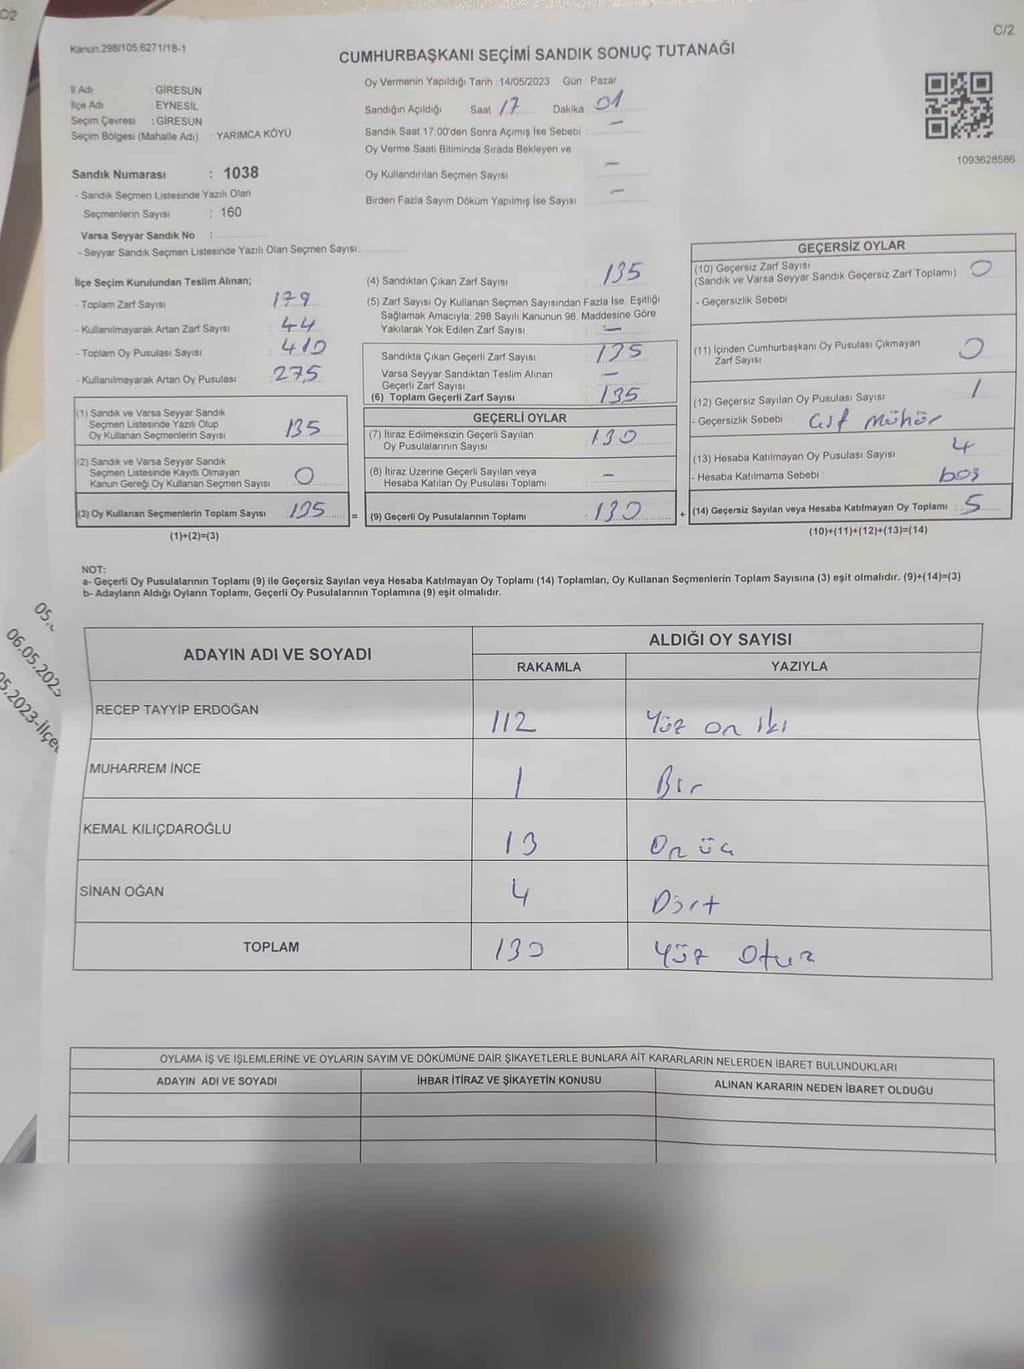 C/2
C/2
Kanun,298/105,6271/18-1
CUMHURBAŞKANI SEÇİMİ SANDIK SONUÇ TUTANAĞI
İl Adı : GİRESUN
İlçe Adı : EYNESİL
Seçim Çevresi : GİRESUN
Seçim Bölgesi (Mahalle Adı) : YARIMCA KÖYÜ
Sandık Numarası : 1038
- Sandık Seçmen Listesinde Yazılı Olan
Seçmenlerin Sayısı : 160
Varsa Seyyar Sandık No :
- Seyyar Sandık Seçmen Listesinde Yazılı Olan Seçmen Sayısı:
Oy Vermenin Yapıldığı Tarih :14/05/2023 Gün : Pazar
Sandığın Açıldığı Saat 17 Dakika 01
Sandık Saat 17:00'den Sonra Açımış İse Sebebi : —
Oy Verme Saati Bitiminde Sırada Bekleyen ve
Oy Kullandırılan Seçmen Sayısı —
Birden Fazla Sayım Döküm Yapılmış İse Sayısı —
1093628586
İlçe Seçim Kurulundan Teslim Alınan;
- Toplam Zarf Sayısı : 179
- Kullanılmayarak Artan Zarf Sayısı : 44
- Toplam Oy Pusulası Sayısı : 410
- Kullanılmayarak Artan Oy Pusulası : 275
(1) Sandık ve Varsa Seyyar Sandık
Seçmen Listesinde Yazılı Olup
Oy Kullanan Seçmenlerin Sayısı : 135
(2) Sandık ve Varsa Seyyar Sandık
Seçmen Listesinde Kayıtlı Olmayan
Kanun Gereği Oy Kullanan Seçmen Sayısı : 0
(3) Oy Kullanan Seçmenlerin Toplam Sayısı : 135 =
(1)+(2)=(3)
(4) Sandıktan Çıkan Zarf Sayısı : 135
(5) Zarf Sayısı Oy Kullanan Seçmen Sayısından Fazla İse, Eşitliği
Sağlamak Amacıyla; 298 Sayılı Kanunun 98. Maddesine Göre
Yakılarak Yok Edilen Zarf Sayısı : —
Sandıkta Çıkan Geçerli Zarf Sayısı : 135
Varsa Seyyar Sandıktan Teslim Alınan
Geçerli Zarf Sayısı : —
(6) Toplam Geçerli Zarf Sayısı : 135
GEÇERLİ OYLAR
(7) İtiraz Edilmeksizin Geçerli Sayılan
Oy Pusulalarının Sayısı : 130
(8) İtiraz Üzerine Geçerli Sayılan veya
Hesaba Katılan Oy Pusulası Toplamı : —
(9) Geçerli Oy Pusulalarının Toplamı : 130 +
GEÇERSİZ OYLAR
(10) Geçersiz Zarf Sayısı
(Sandık ve Varsa Seyyar Sandık Geçersiz Zarf Toplamı) : 0
- Geçersizlik Sebebi
(11) İçinden Cumhurbaşkanı Oy Pusulası Çıkmayan
Zarf Sayısı 0
(12) Geçersiz Sayılan Oy Pusulası Sayısı : 1
- Geçersizlik Sebebi : Çift mühür
(13) Hesaba Katılmayan Oy Pusulası Sayısı 4
- Hesaba Katılmama Sebebi : boş
(14) Geçersiz Sayılan veya Hesaba Katılmayan Oy Toplamı : 5
(10)+(11)+(12)+(13)=(14)
NOT:
a- Geçerli Oy Pusulalarının Toplamı (9) ile Geçersiz Sayılan veya Hesaba Katılmayan Oy Toplamı (14) Toplamları, Oy Kullanan Seçmenlerin Toplam Sayısına (3) eşit olmalıdır. (9)+(14)=(3)
b- Adayların Aldığı Oyların Toplamı, Geçerli Oy Pusulalarının Toplamına (9) eşit olmalıdır.
06.05.2023
ADAYIN ADI VE SOYADI
ALDIĞI OY SAYISI
RAKAMLA YAZIYLA
RECEP TAYYİP ERDOĞAN 112 Yüz on iki
MUHARREM İNCE 1 Bir
KEMAL KILIÇDAROĞLU 13 On üç
SİNAN OĞAN 4 Dört
TOPLAM 130 Yüz Otuz
OYLAMA İŞ VE İŞLEMLERİNE VE OYLARIN SAYIM VE DÖKÜMÜNE DAİR ŞİKAYETLERLE BUNLARA AİT KARARLARIN NELERDEN İBARET BULUNDUKLARI
ADAYIN ADI VE SOYADI İHBAR İTİRAZ VE ŞİKAYETİN KONUSU ALINAN KARARIN NEDEN İBARET OLDUĞU